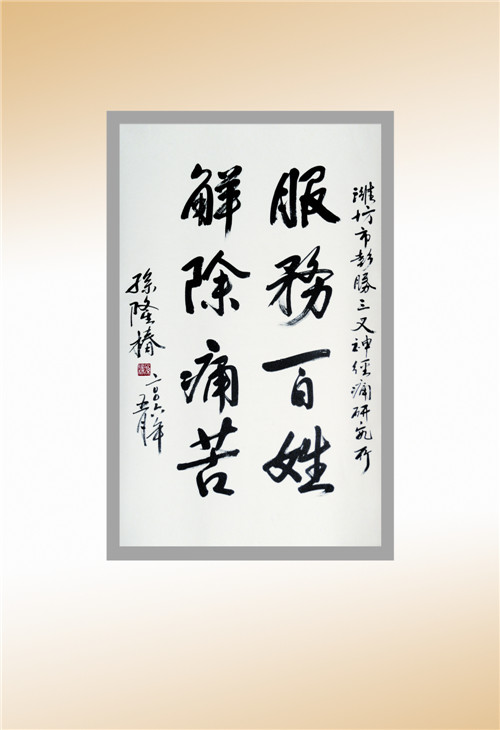 潍坊市彭勝三叉神经痛研究所
服務百姓
解除痛苦
孫隆椿
二〇〇六年
五月